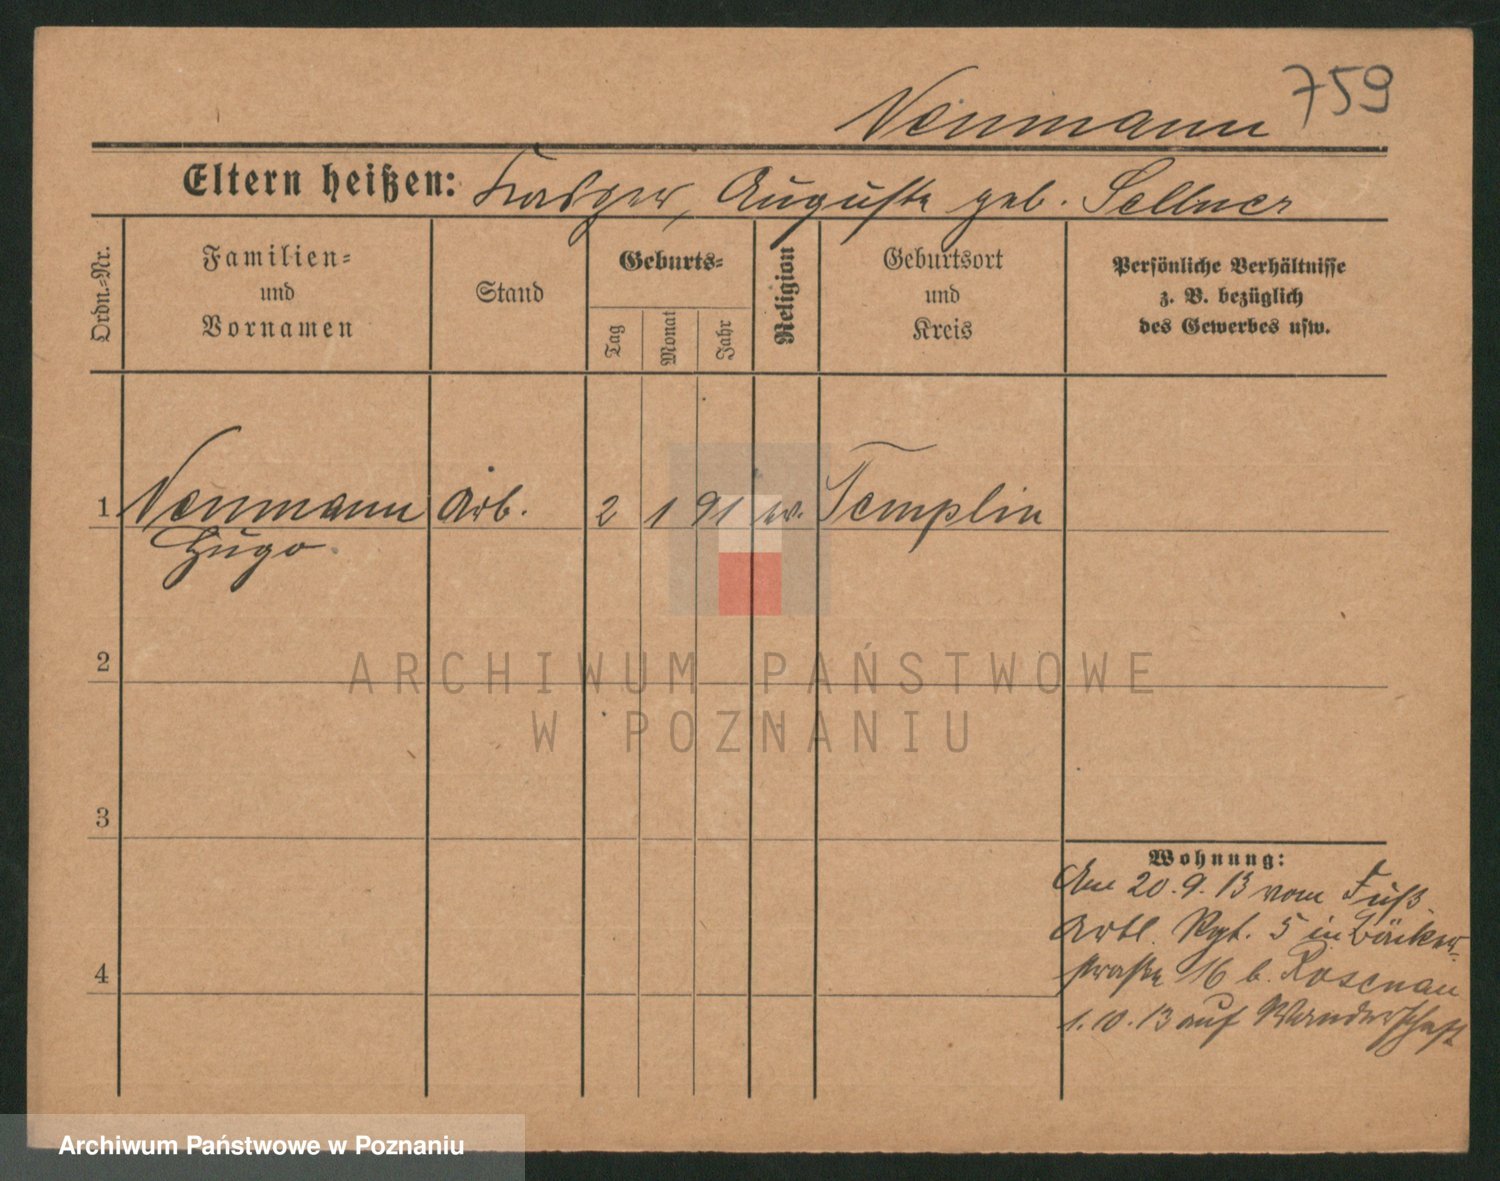 759
Neumann
Eltern heißen: Kasper, Auguste geb. Sellner
Ordn.-Nr.
Familien-
und
Vornamen
Stand
Geburts-
Tag
Monat
Jahr
Religion
Geburtsort
und
Kreis
Persönliche Verhältnisse
z. B. bezüglich
des Gewerbes usw.
1 Neumann Arb. 2 1 91 ev. Templin
Hugo
2
ARCHIWUM PAŃSTWOWE
W POZNANIU
3
Wohnung:
Am 20.9.13 vom Fuß-
Artl. Rgt. 5 in Bäcker-
straße 16 b. Rosenau
4
1.10.13 auf Wanderschaft
Archiwum Państwowe w Poznaniu